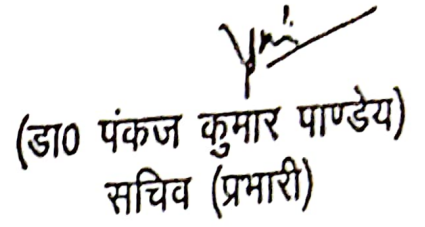 (डा0 पंकज कुमार पाण्डेय)
सचिव (प्रभारी)